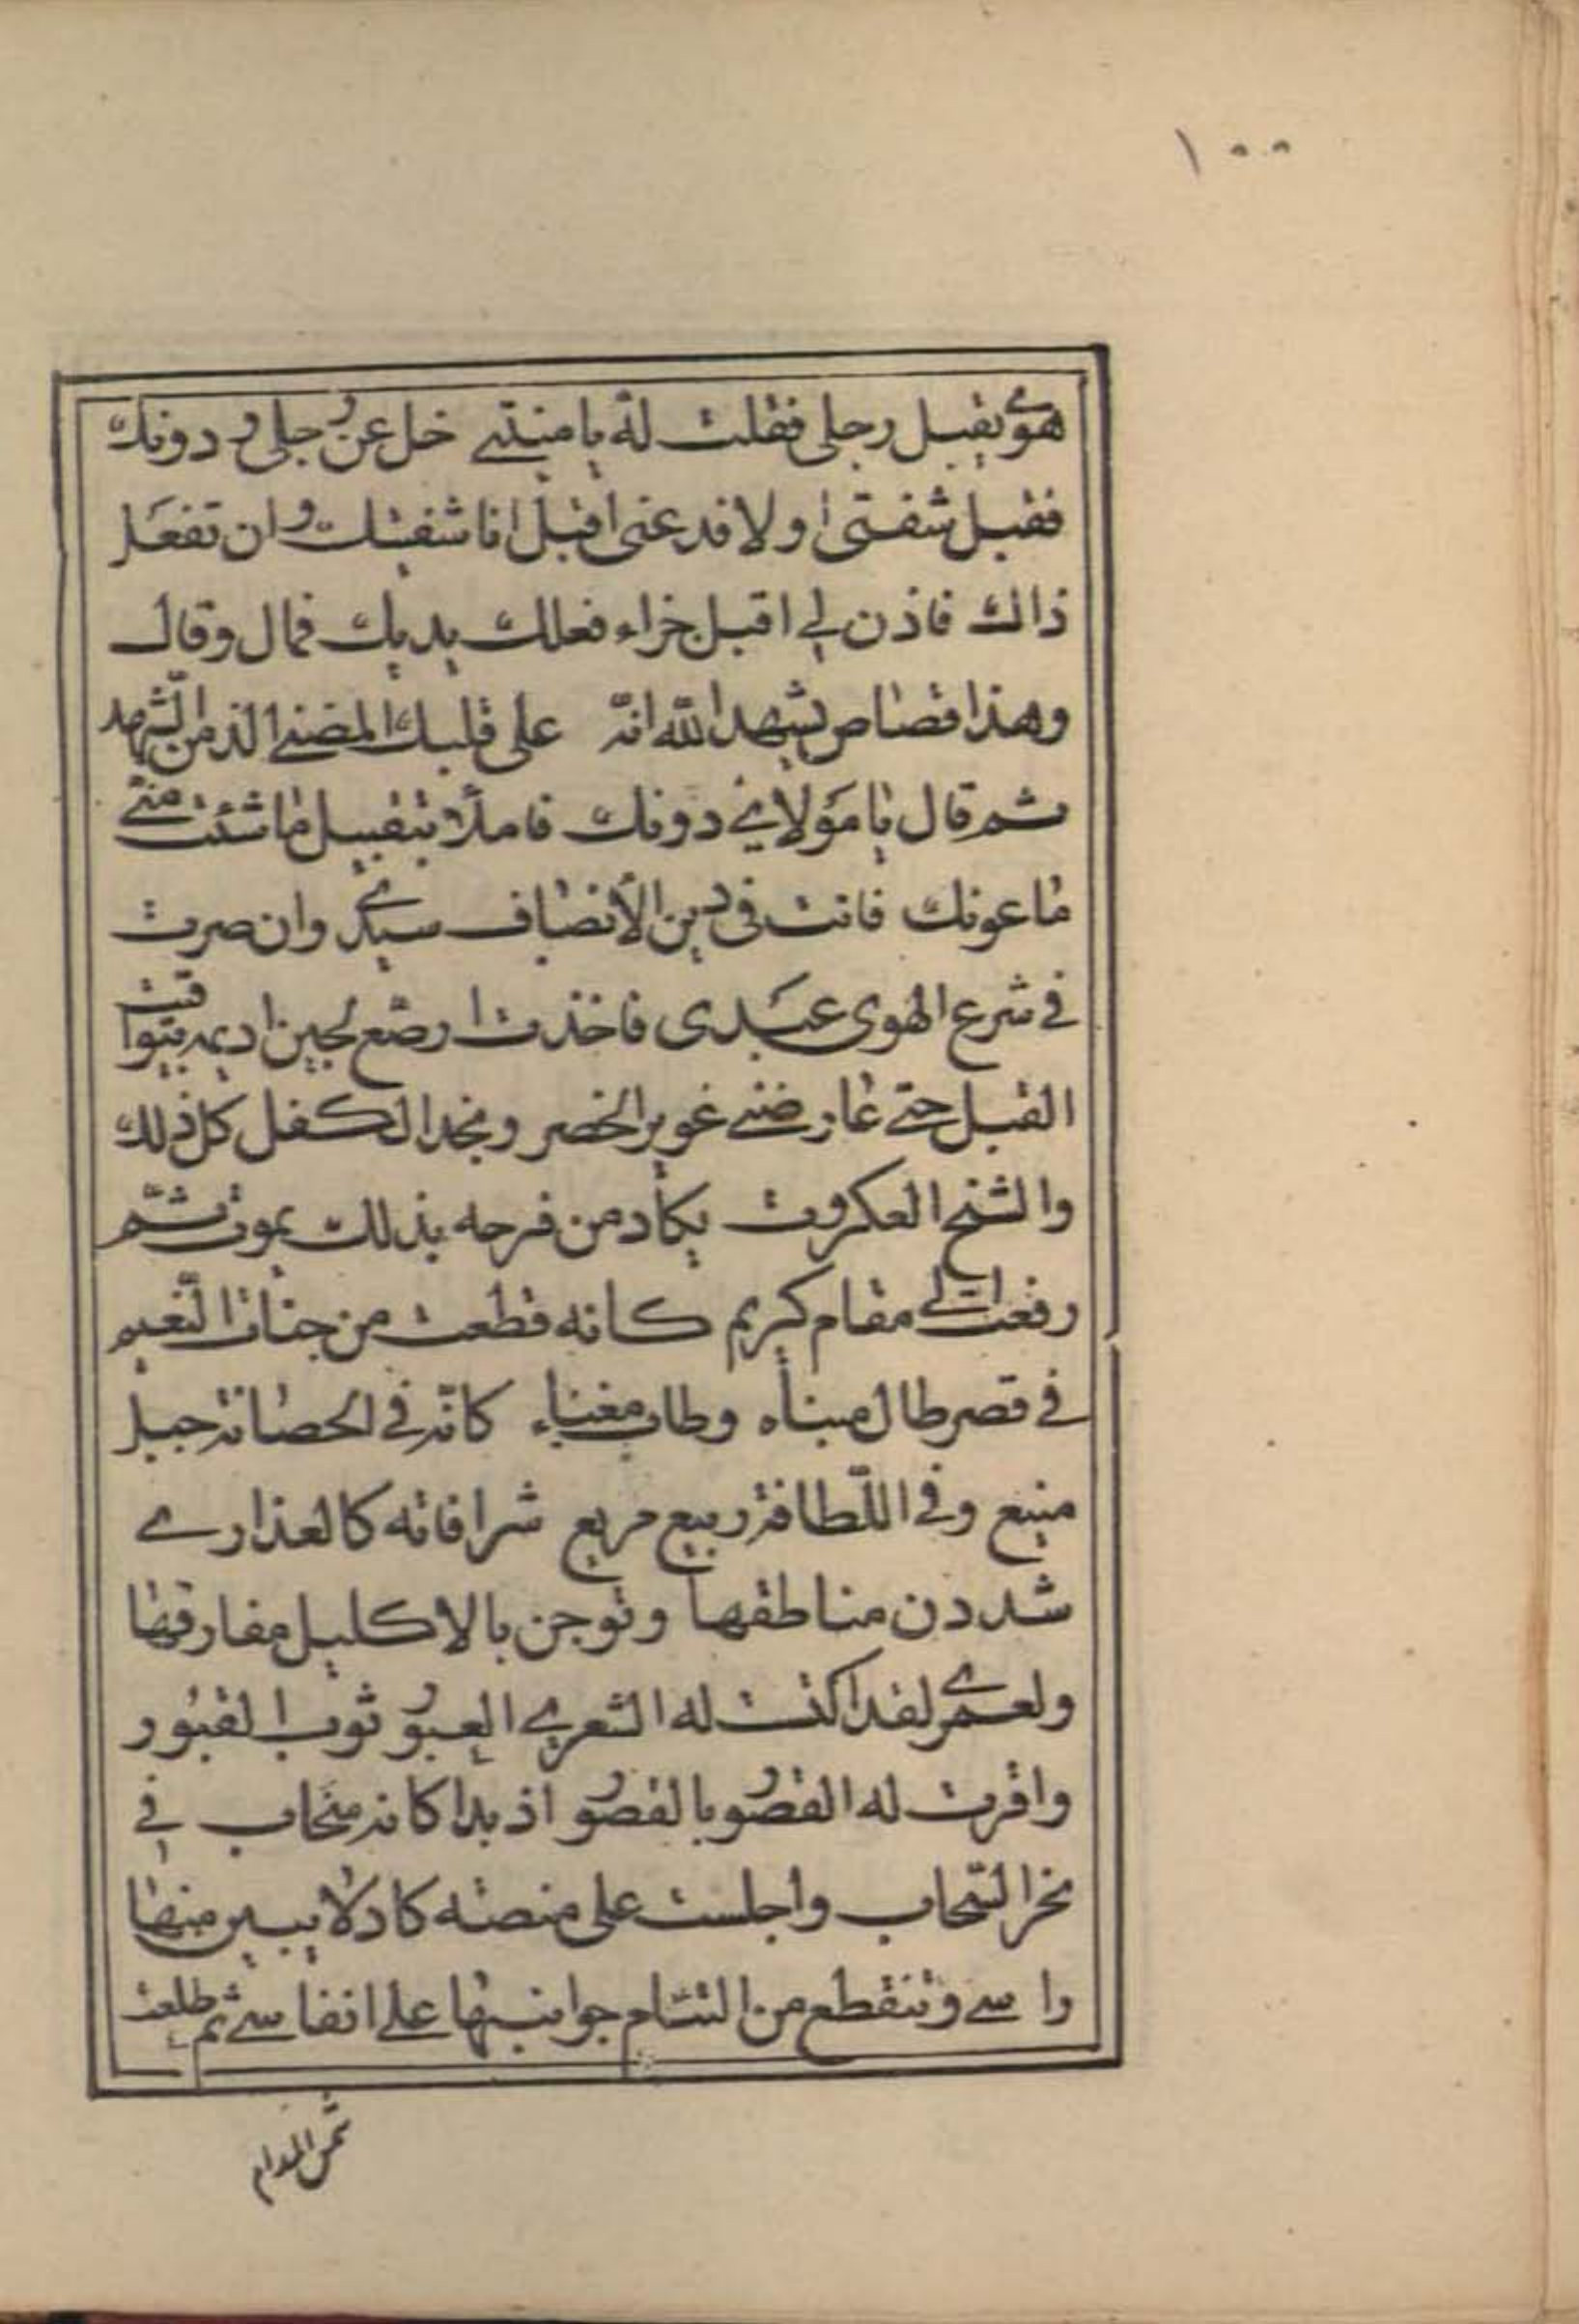 ١٠٠
هوى يقبل رجلي فقلت له يا منيتي خل عن رجلي و دونك
فقبل شفتي اولا فدعني اقبل انا شفتيك وان تفعل
ذاك فاذن لي اقبل جزاء فعلك يديك فمال وقال
وهذا قصاص يشهد الله انه على قلبك المضنى الذ من الشهد
ثم قال يا مولاي دونك فاملأ بتقبيل ما شئت مني
ماعونك فانت في دين الأنصاف سيدي وان صرت
في شرع الهوى عبدي فاخذت ارصع لجين اديمه بيواقيت
القبل حتى عارضني غوير الخصر ونجد الكفل كل ذلك
والشيخ العكروت يكاد من فرحه بذلك يموت ثم
رفعت الى مقام كريم كانه قطعت من جنات النعيم
في قصر طال مبناه وطاب مغناء كانه في الحصانة جبل
منيع وفي اللطافة ربيع مريع شرافاته كالعذارى
شددن مناطقها وتوجن بالاكليل مفارقها
ولعمري لقد اكنت له الشعرى العبور ثوب الغيور
واقرت له القصور بالقصور اذ بدا كانه سحاب في
نحر السحاب واجلست على منصة كاد لا يبين منها
راسي وتنقطع من التئام جوانبها على انفاسي ثم طلعت
شمس المدام